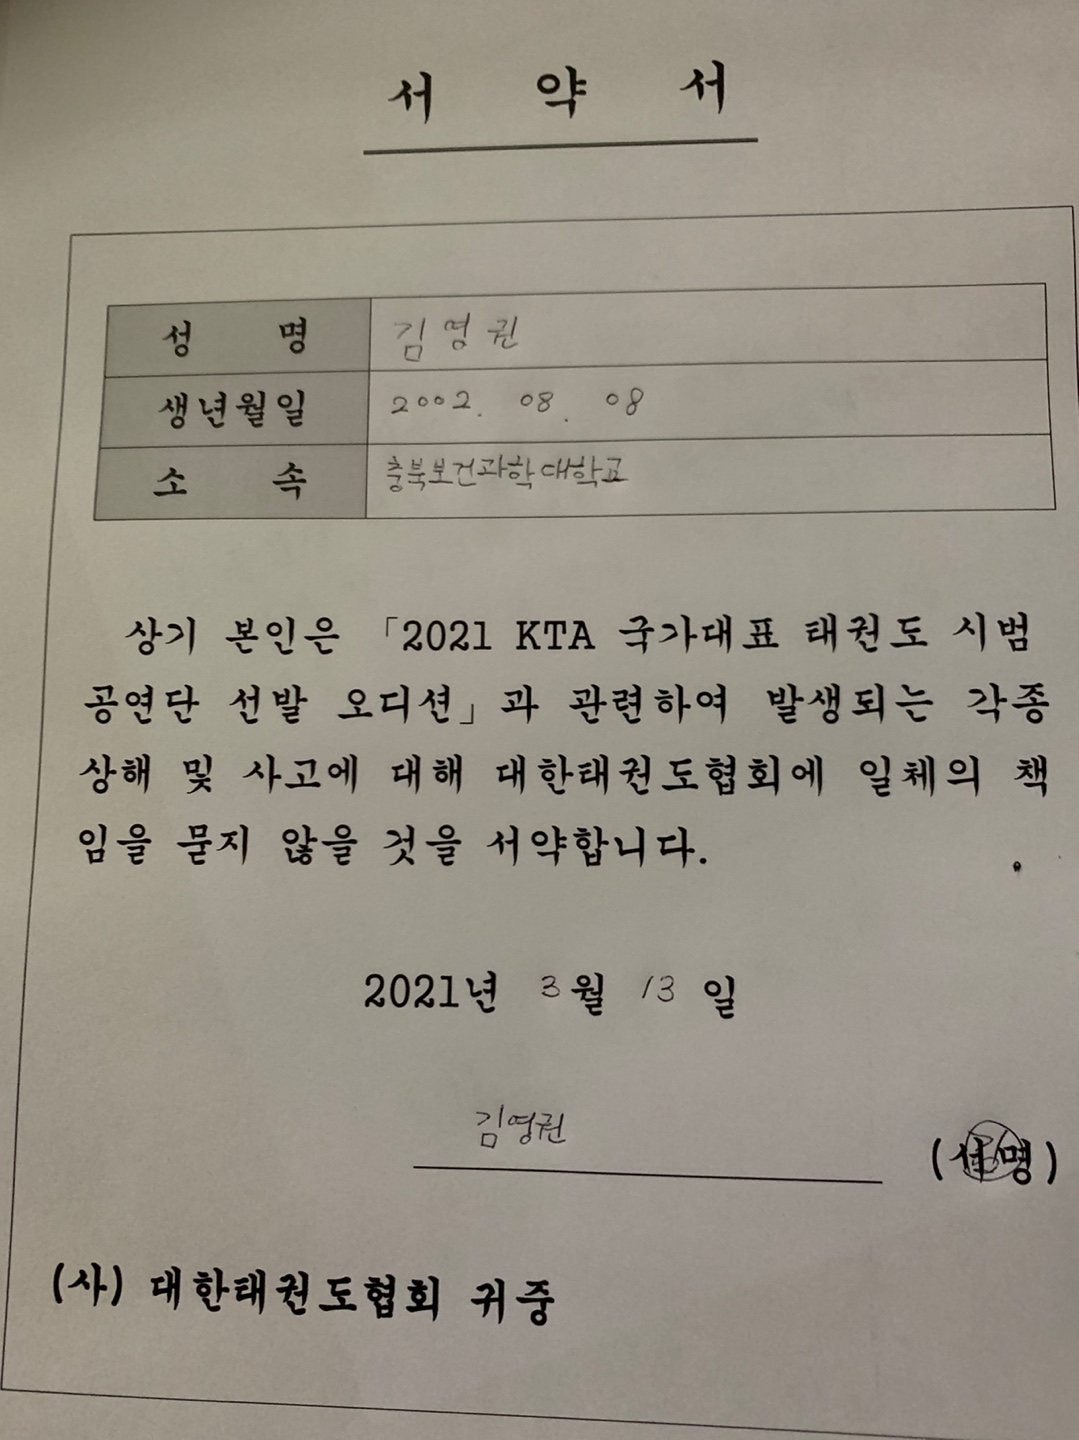 서 약 서
성 명 김영권
생년월일 2002. 08. 08
소 속 충북보건과학대학교
상기 본인은 「2021 KTA 국가대표 태권도 시범
공연단 선발 오디션」과 관련하여 발생되는 각종
상해 및 사고에 대해 대한태권도협회에 일체의 책
임을 묻지 않을 것을 서약합니다.
2021년 3월 13일
김영권 (서명)
(사) 대한태권도협회 귀중